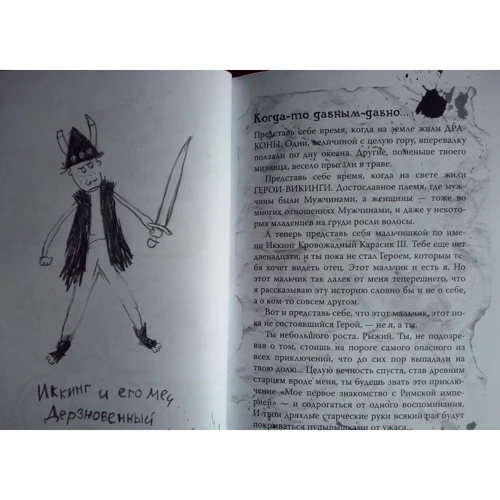 Иккинг и его меч
Дерзновенный
Когда-то давным-давно...
Представь себе время, когда на земле жили ДРА-
КОНЫ. Одни, величиной с целую гору, вперевалку
ползали по дну океана. Другие, поменьше твоего
мизинца, весело прыгали в траве.
Представь себе время, когда на свете жили
ГЕРОИ-ВИКИНГИ. Достославное племя, где муж-
чины были Мужчинами, а женщины — тоже во
многих отношениях Мужчинами, и даже у неко-
торых младенцев на груди росли волосы.
А теперь представь себя мальчишкой по име-
ни Иккинг Кровожадный Карасик III. Тебе еще нет
двенадцати, и ты пока не стал Героем, которым те-
бя хочет видеть отец. Этот мальчик и есть я. Но
этот мальчик так далек от меня теперешнего, что
я рассказываю эту историю словно бы и не о себе,
а о ком-то совсем другом.
Вот и представь себе, что этот мальчик, этот по-
ка не состоявшийся Герой, — не я, а ты.
Ты небольшого роста. Рыжий. Ты, не подозре-
вая о том, стоишь на пороге самого опасного из
всех приключений, что до сих пор выпадали на
твою долю... Целую вечность спустя, став древним
старцем вроде меня, ты будешь звать это приклю-
чение «Мое первое знакомство с Римской импе-
рией» — и содрогаться от одного воспоминания.
И твои дряхлые старческие руки всякий раз будут
покрываться пупырышками от ужаса...